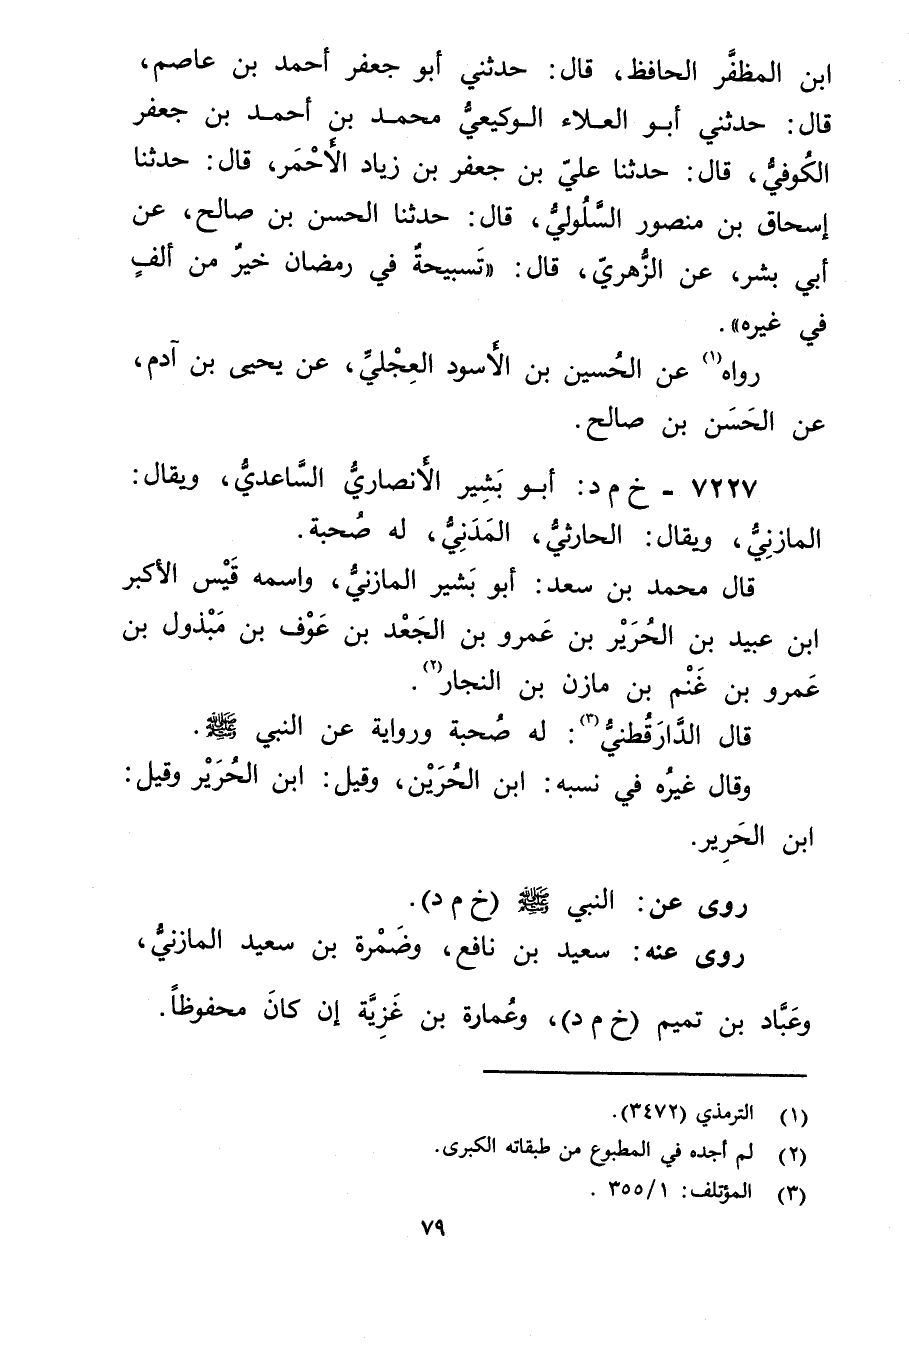 ابن المظفَّر الحافظ، قال: حدثني أبو جعفر أحمد بن عاصم،
قال: حدثني أبـو العـلاء الـوكيعيُّ محمـد بـن أحمـد بـن جعفر
الكُوفيُّ، قال: حدثنا عليّ بن جعفر بن زياد الأَحْمَر، قال: حدثنا
إسحاق بن منصور السَّلُوليُّ، قال: حدثنا الحسن بن صالح، عن
أبي بشر، عن الزُّهريّ، قال: «تَسبيحةٌ في رمضان خيرٌ من ألفٍ
في غيره».
رواه(١) عن الحُسين بن الأَسود العِجْليِّ، عن يحيى بن آدم،
عن الحَسَن بن صالح.
٧٢٢٧ ـ خ م د: أبـو بَشِير الأَنصاريُّ السَّاعديُّ، ويقال:
المازنِيُّ، ويقال: الحارثيُّ، المَدَنِيُّ، له صُحبة.
قال محمد بن سعد: أبو بَشير المازنيُّ، واسمه قَيْس الأكبر
ابن عبيد بن الحُرَيْر بن عَمرو بن الجَعْد بن عَوْف بن مَبْذول بن
عَمرو بن غَنْم بن مازن بن النجار(٢).
قال الدَّارَقُطنيُّ(٣): له صُحبة ورواية عن النبي ﷺ.
وقال غيرُه في نسبه: ابن الحُرَيْن، وقيل: ابن الحُرَيْر وقيل:
ابن الحَرِير.
روى عن: النبي ﷺ (خ م د).
روى عنه: سعيد بن نافع، وضَمْرة بن سعيد المازنيُّ،
وعَبَّاد بن تميم (خ م د)، وعُمارة بن غَزِيَّة إن كانَ محفوظاً.
(١) الترمذي (٣٤٧٢).
(٢) لم أجده في المطبوع من طبقاته الكبرى.
(٣) المؤتلف: ١/ ٣٥٥ .
٧٩